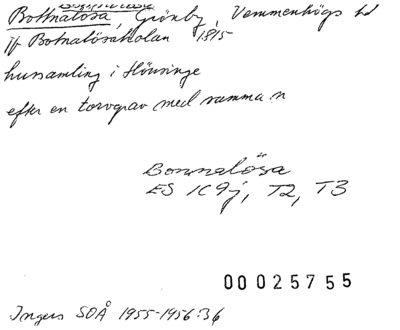 Bottnalösa, Grönby, Vemmenhögs hd
jfr Botnalösaskolan 1815
hussamling i Hönsinge
efter en torvgrav med samma n
Bonnalösa
ES 1C9j, T2, T3
00025755
Ingers SOÅ 1955-1956:36